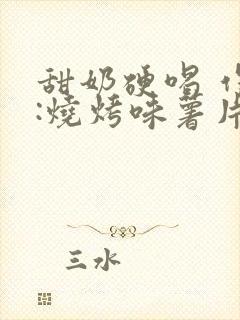 甜奶硬唱
:燒烤味薯片
三水